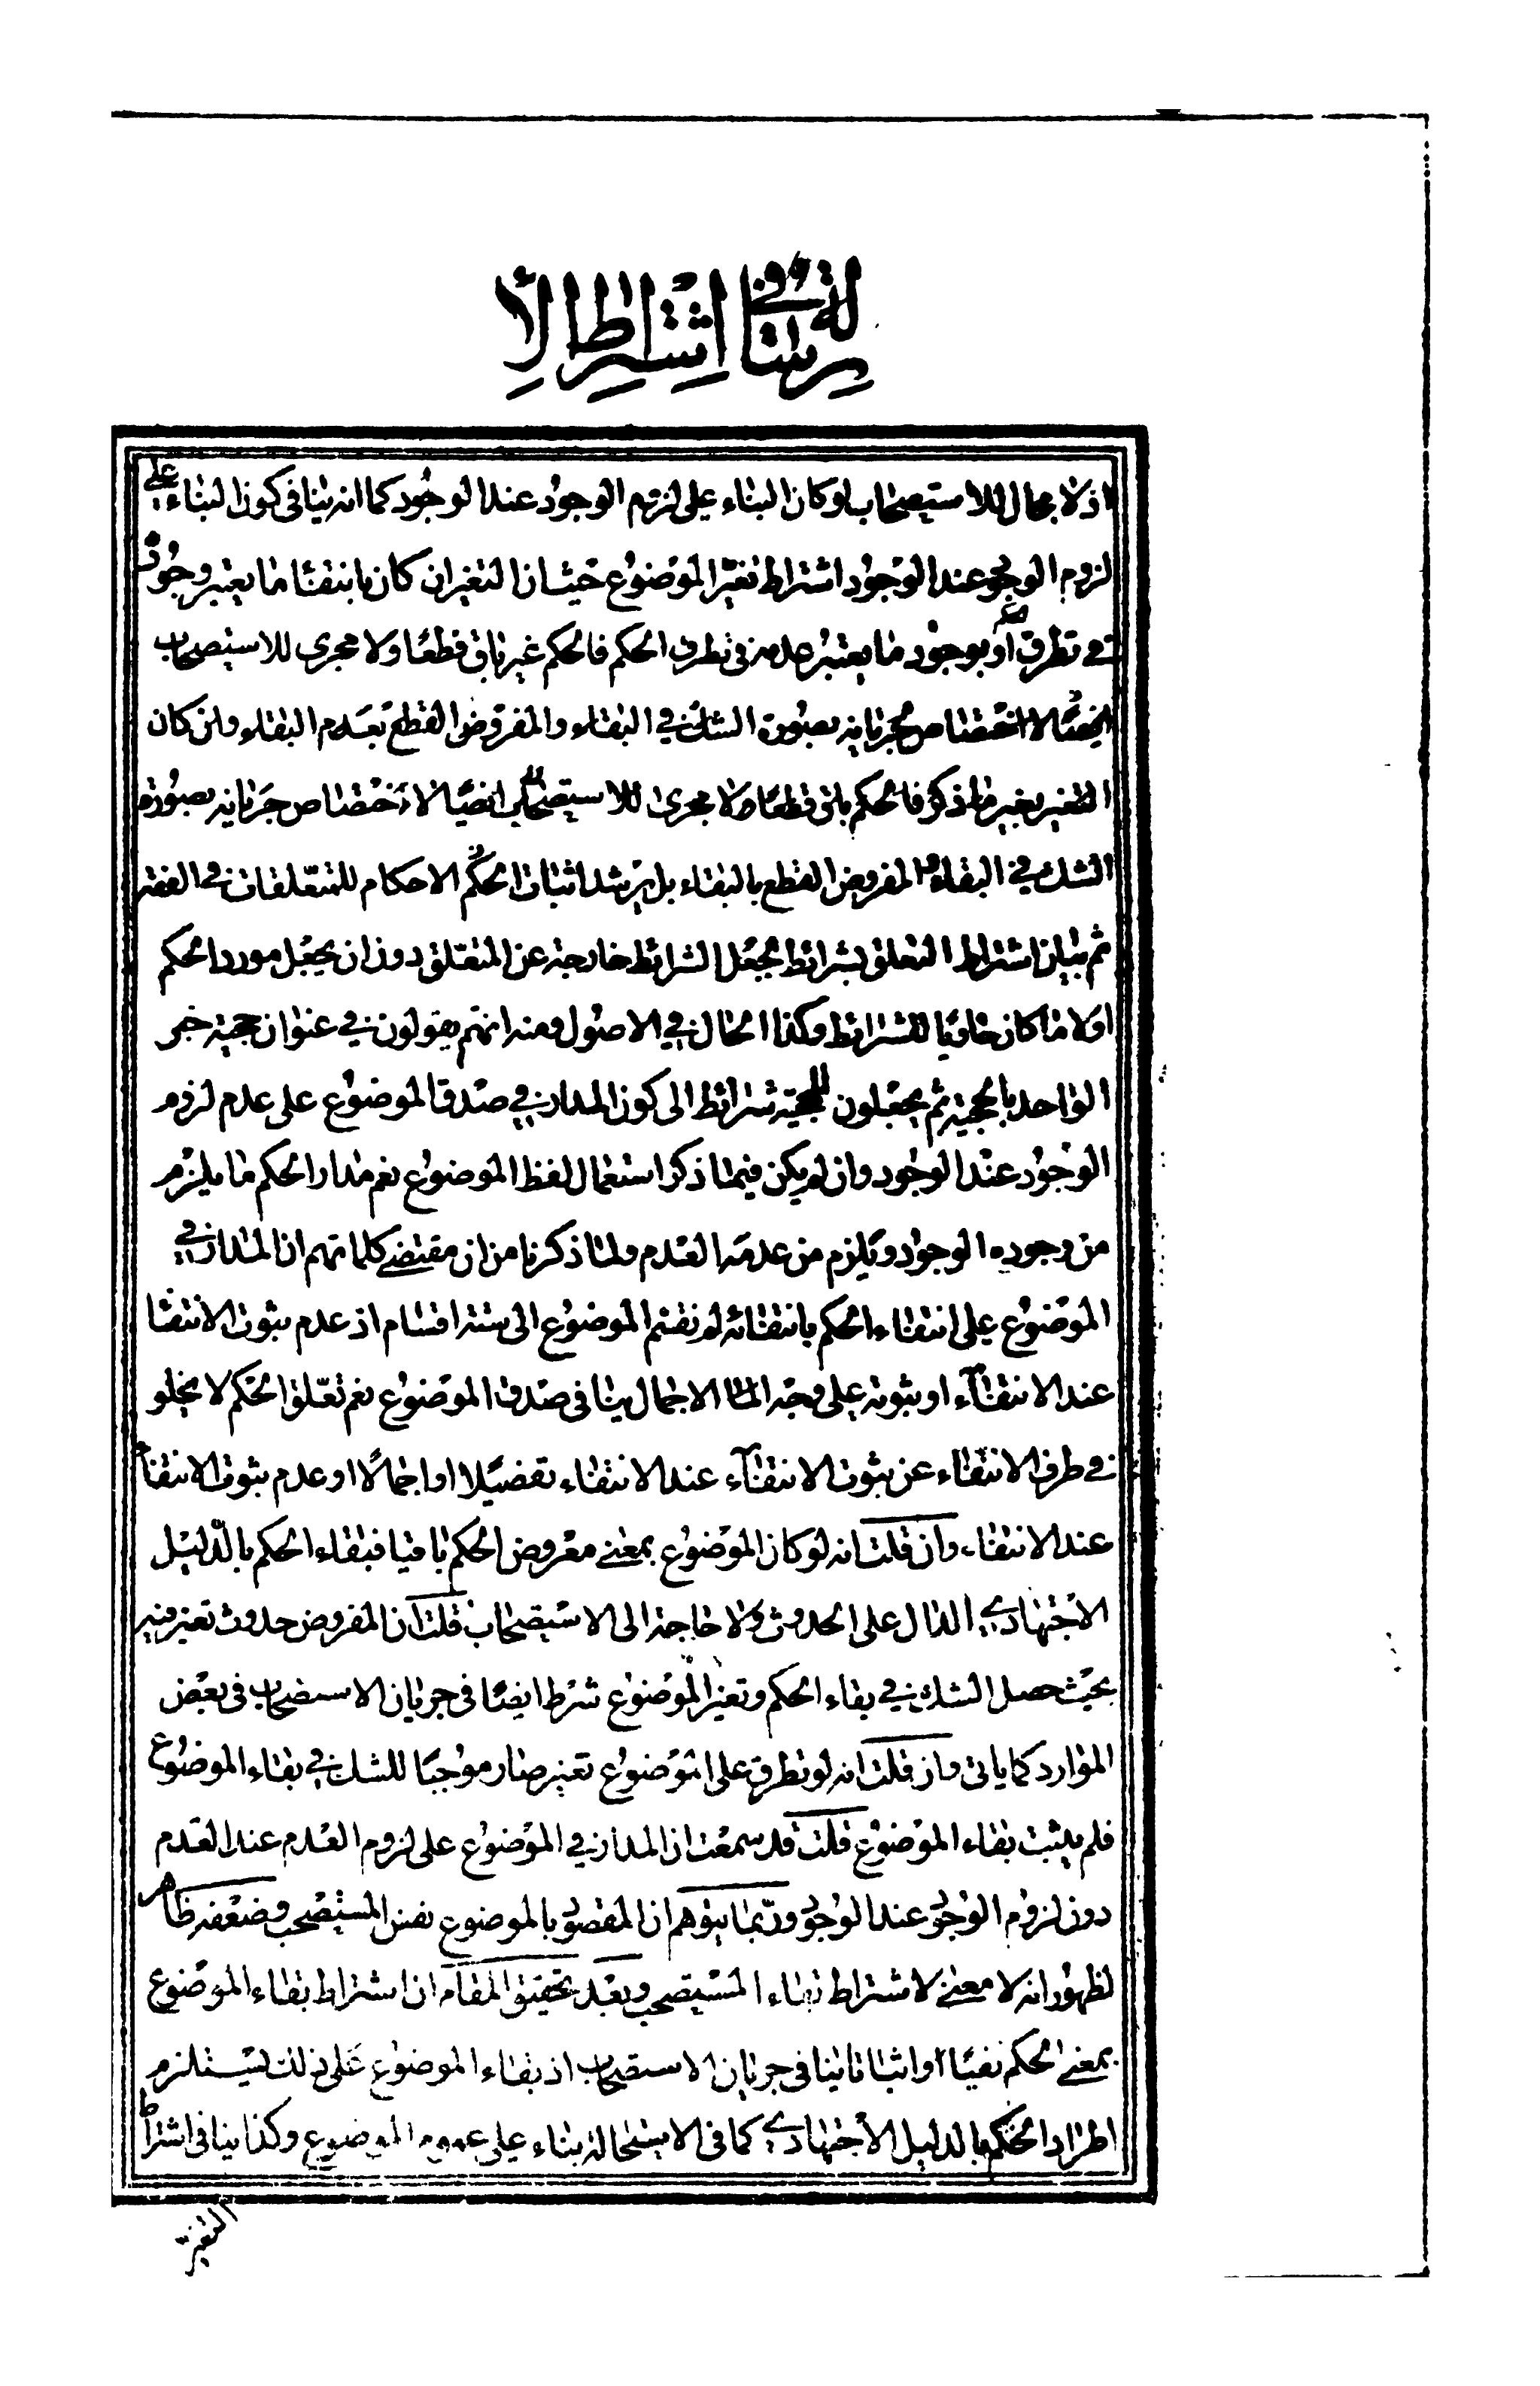 رسالة في اشتراط الا
اذ لا مجال للاستصحاب لو كان البناء على لزوم الوجود عند الوجود كما انه ينافى كون البناء على
لزوم الوجود عند الوجود اشتراط تغير الموضوع حيث ان التغير ان كان بانتفاء ما يعتبر وجوده
فى تطرق او بوجود ما يعتبر عدمه فى تطرق الحكم فالحكم غير باق قطعا ولا مجرى للاستصحاب
ايضا لاختصاص جريانه بصورة الشك في البقاء والمفروض القطع بعدم البقاء وان كان
التغير بغير ما ذكر فالحكم باق قطعا ولا مجرى للاستصحاب ايضا لاختصاص جريانه بصورة
الشك في البقاء والمفروض القطع بالبقاء بل يرشد اثبات الحكم الاحكام للمتعلقات فى الفقه
ثم بيان اشتراط التعلق بشرائط بجعل الشرائط خارجة عن المتعلق دون ان يجعل مورد الحكم
اولا ما كان حاويا للشرائط وكذا الحال في الاصول ومنه انهم يقولون في عنوان حجية خبر
الواحد بالحجية ثم يجعلون للحجية شرائط الى كون المدار في صدق الموضوع على عدم لزوم
الوجود عند الوجود وان لم يكن فيما ذكر استعمال لفظ الموضوع نعم مدار الحكم ما يلزم
من وجوده الوجود ويلزم من عدمه العدم ولما ذكرنا من ان مقتضى كلماتهم ان المدار في
الموضوع على انتفاء الحكم بانتفائه لم نقسم الموضوع الى ستة اقسام اذ عدم ثبوت الانتفاء
عند الانتفاء او ثبوته على وجه الاجمال ينافى صدق الموضوع نعم تعلق الحكم لا يخلو
فى طرف الانتفاء عن ثبوت الانتفاء عند الانتفاء تفصيلا او اجمالا او عدم ثبوت الانتفاء
عند الانتفاء وان قلت انه لو كان الموضوع بمعنى معروض الحكم باقيا فبقاء الحكم بالدليل
الاجتهادي الدال على الحدوث ولا حاجة الى الاستصحاب قلت ان المفروض حدوث تغير فيه
بحيث حصل الشك في بقاء الحكم وتغير الموضوع شرط ايضا فى جريان الاستصحاب فى بعض
الموارد كما ياتى وان قلت انه لو تطرق على الموضوع تغير صار موجبا للشك في بقاء الموضوع
فلم يثبت بقاء الموضوع قلت قد سمعت ان المدار في الموضوع على لزوم العدم عند العدم
دون لزوم الوجود عند الوجود وربما يتوهم ان المقصود بالموضوع نفس المستصحب وضعفه ظاهر
لظهور انه لا معنى لاشتراط بقاء المستصحب وبعد تحقيق المقام ان اشتراط بقاء الموضوع
بمعنى الحكم نفيا او اثباتا ينافى جريان الاستصحاب اذ بقاء الموضوع على ذلك يستلزم
اطراد الحكم بالدليل الاجتهادي كما فى الاستحالة بناء على عموم الموضوع وكذا ينافى اشتراط
التغير